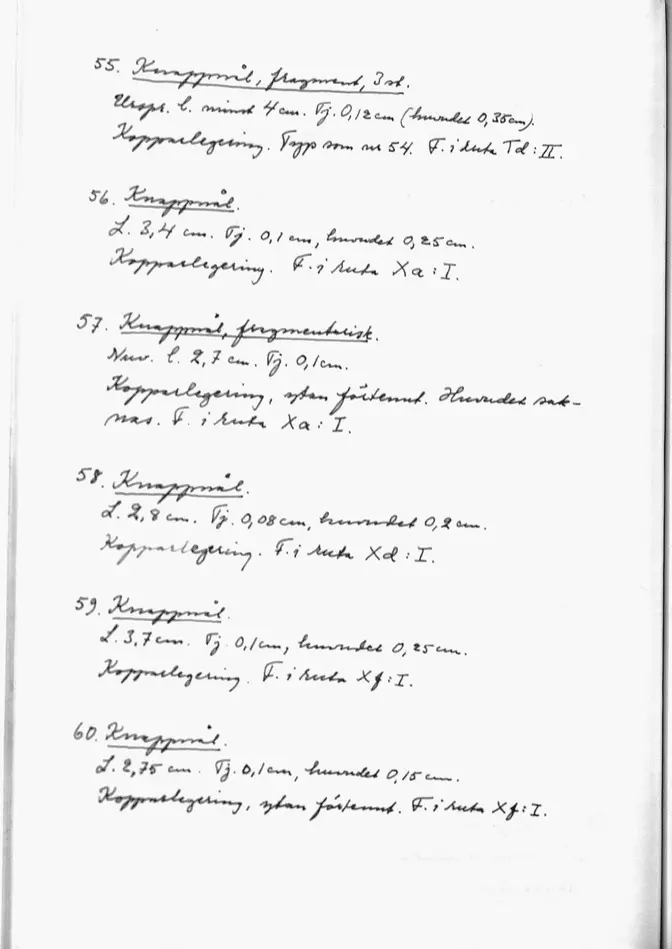 55. Knappnål, fragment, 3 st.
Urspr. l. minst 4 cm. Tj. 0,12 cm (huvudet 0,35 cm).
Kopparlegering. Typ som nr 54. F. i ruta Td : II.
56. Knappnål.
L. 3,4 cm. Tj. 0,1 cm, huvudet 0,25 cm.
Kopparlegering. F. i ruta Xa : I.
57. Knappnål, fragmentarisk.
Nuv. l. 2,7 cm. Tj. 0,1 cm.
Kopparlegering, ytan förtennt. Huvudet sak-
nas. F. i ruta Xa : I.
58. Knappnål.
L. 2,8 cm. Tj. 0,08 cm, huvudet 0,2 cm.
Kopparlegering. F. i ruta Xd : I.
59. Knappnål.
L. 3,7 cm. Tj. 0,1 cm, huvudet 0,25 cm.
Kopparlegering. F. i ruta Xf : I.
60. Knappnål.
L. 2,75 cm. Tj. 0,1 cm, huvudet 0,15 cm.
Kopparlegering, ytan förtennt. F. i ruta Xf : I.